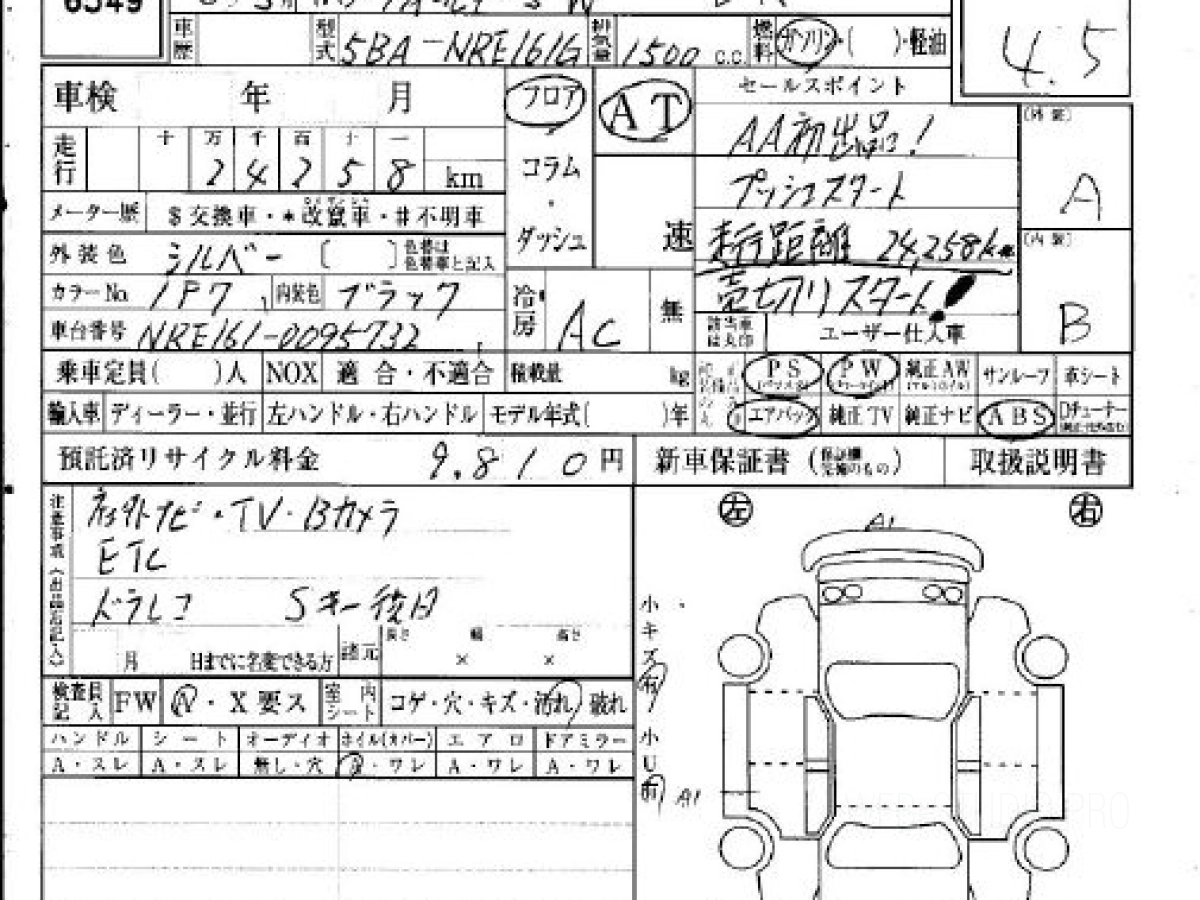 6549
車歴 型式 5BA-NRE161G 排気量 1500 c.c. 燃料 ガソリン・( )・軽油
4.5
車検 年 月 フロア AT セールスポイント
・
コラム
・
ダッシュ
速
(外装)
A
(内装)
B
AA初出品!
プッシュスタート
走行距離 24,258km
売切りスタート!
走行 十 万 千 百 十 一
2 4 2 5 8 km
メーター歴 $交換車・*改竄車・#不明車
外装色 シルバー [ ] 色替は色替車と記入
カラーNo 1P7 内装色 ブラック
車台番号 NRE161-0095732
冷房 AC 無
該当車は丸印 ユーザー仕入車
乗車定員( )人 NOX 適合・不適合 積載量 kg
PS PW 純正AW サンルーフ 革シート
輸入車 ディーラー・並行 左ハンドル・右ハンドル モデル年式( )年
エアバッグ 純正TV 純正ナビ ABS
預託済リサイクル料金 9.810円 新車保証書 取扱説明書
注意事項(出品店記入)
社外ナビ・TV・Bカメラ
ETC
ドラレコ Sキー後日
月 日までに名変できる方 諸元 長さ × 幅 × 高さ
検査員記入 FW N・X要ス 室内シート コゲ・穴・キズ・汚れ・破れ
ハンドル シート オーディオ ホイル(カバー) エアロ ドアミラー
A・スレ A・スレ 無し・穴 A・ワレ A・ワレ A・ワレ
左 右
A1
小キズ有
小U有
A1